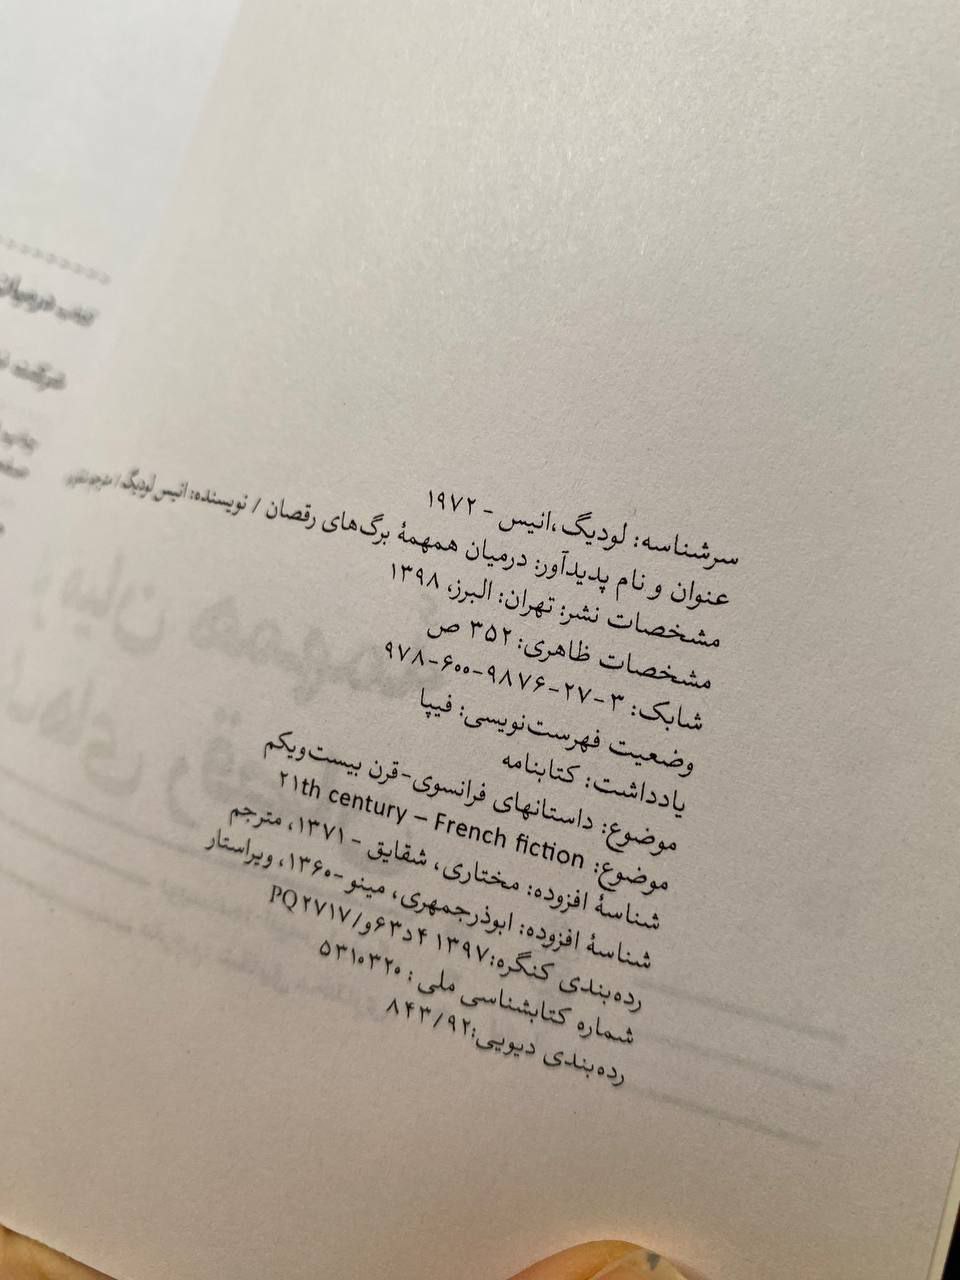 سرشناسه: لودیگ،انیس - ۱۹۷۲
عنوان و نام پدیدآور: درمیان همهمهٔ برگ‌های رقصان / نویسنده: انیس لودیگ/ مترجم
مشخصات نشر: تهران: البرز، ۱۳۹۸
مشخصات ظاهری: ۳۵۲ ص
شابک: ۳-۲۷-۹۸۷۶-۶۰۰-۹۷۸
وضعیت فهرست‌نویسی: فیپا
یادداشت: کتابنامه
موضوع: داستانهای فرانسوی-قرن بیست‌ویکم
موضوع: ۲۱th century – French fiction
شناسهٔ افزوده: مختاری، شقایق - ۱۳۷۱، مترجم
شناسهٔ افزوده: ابوذرجمهری، مینو -۱۳۶۰، ویراستار
رده‌بندی کنگره:۱۳۹۷ ۴د۶۳و/PQ۲۷۱۷
شماره کتابشناسی ملی : ۵۳۱۰۳۲۰
رده‌بندی دیویی:۸۴۳/۹۲